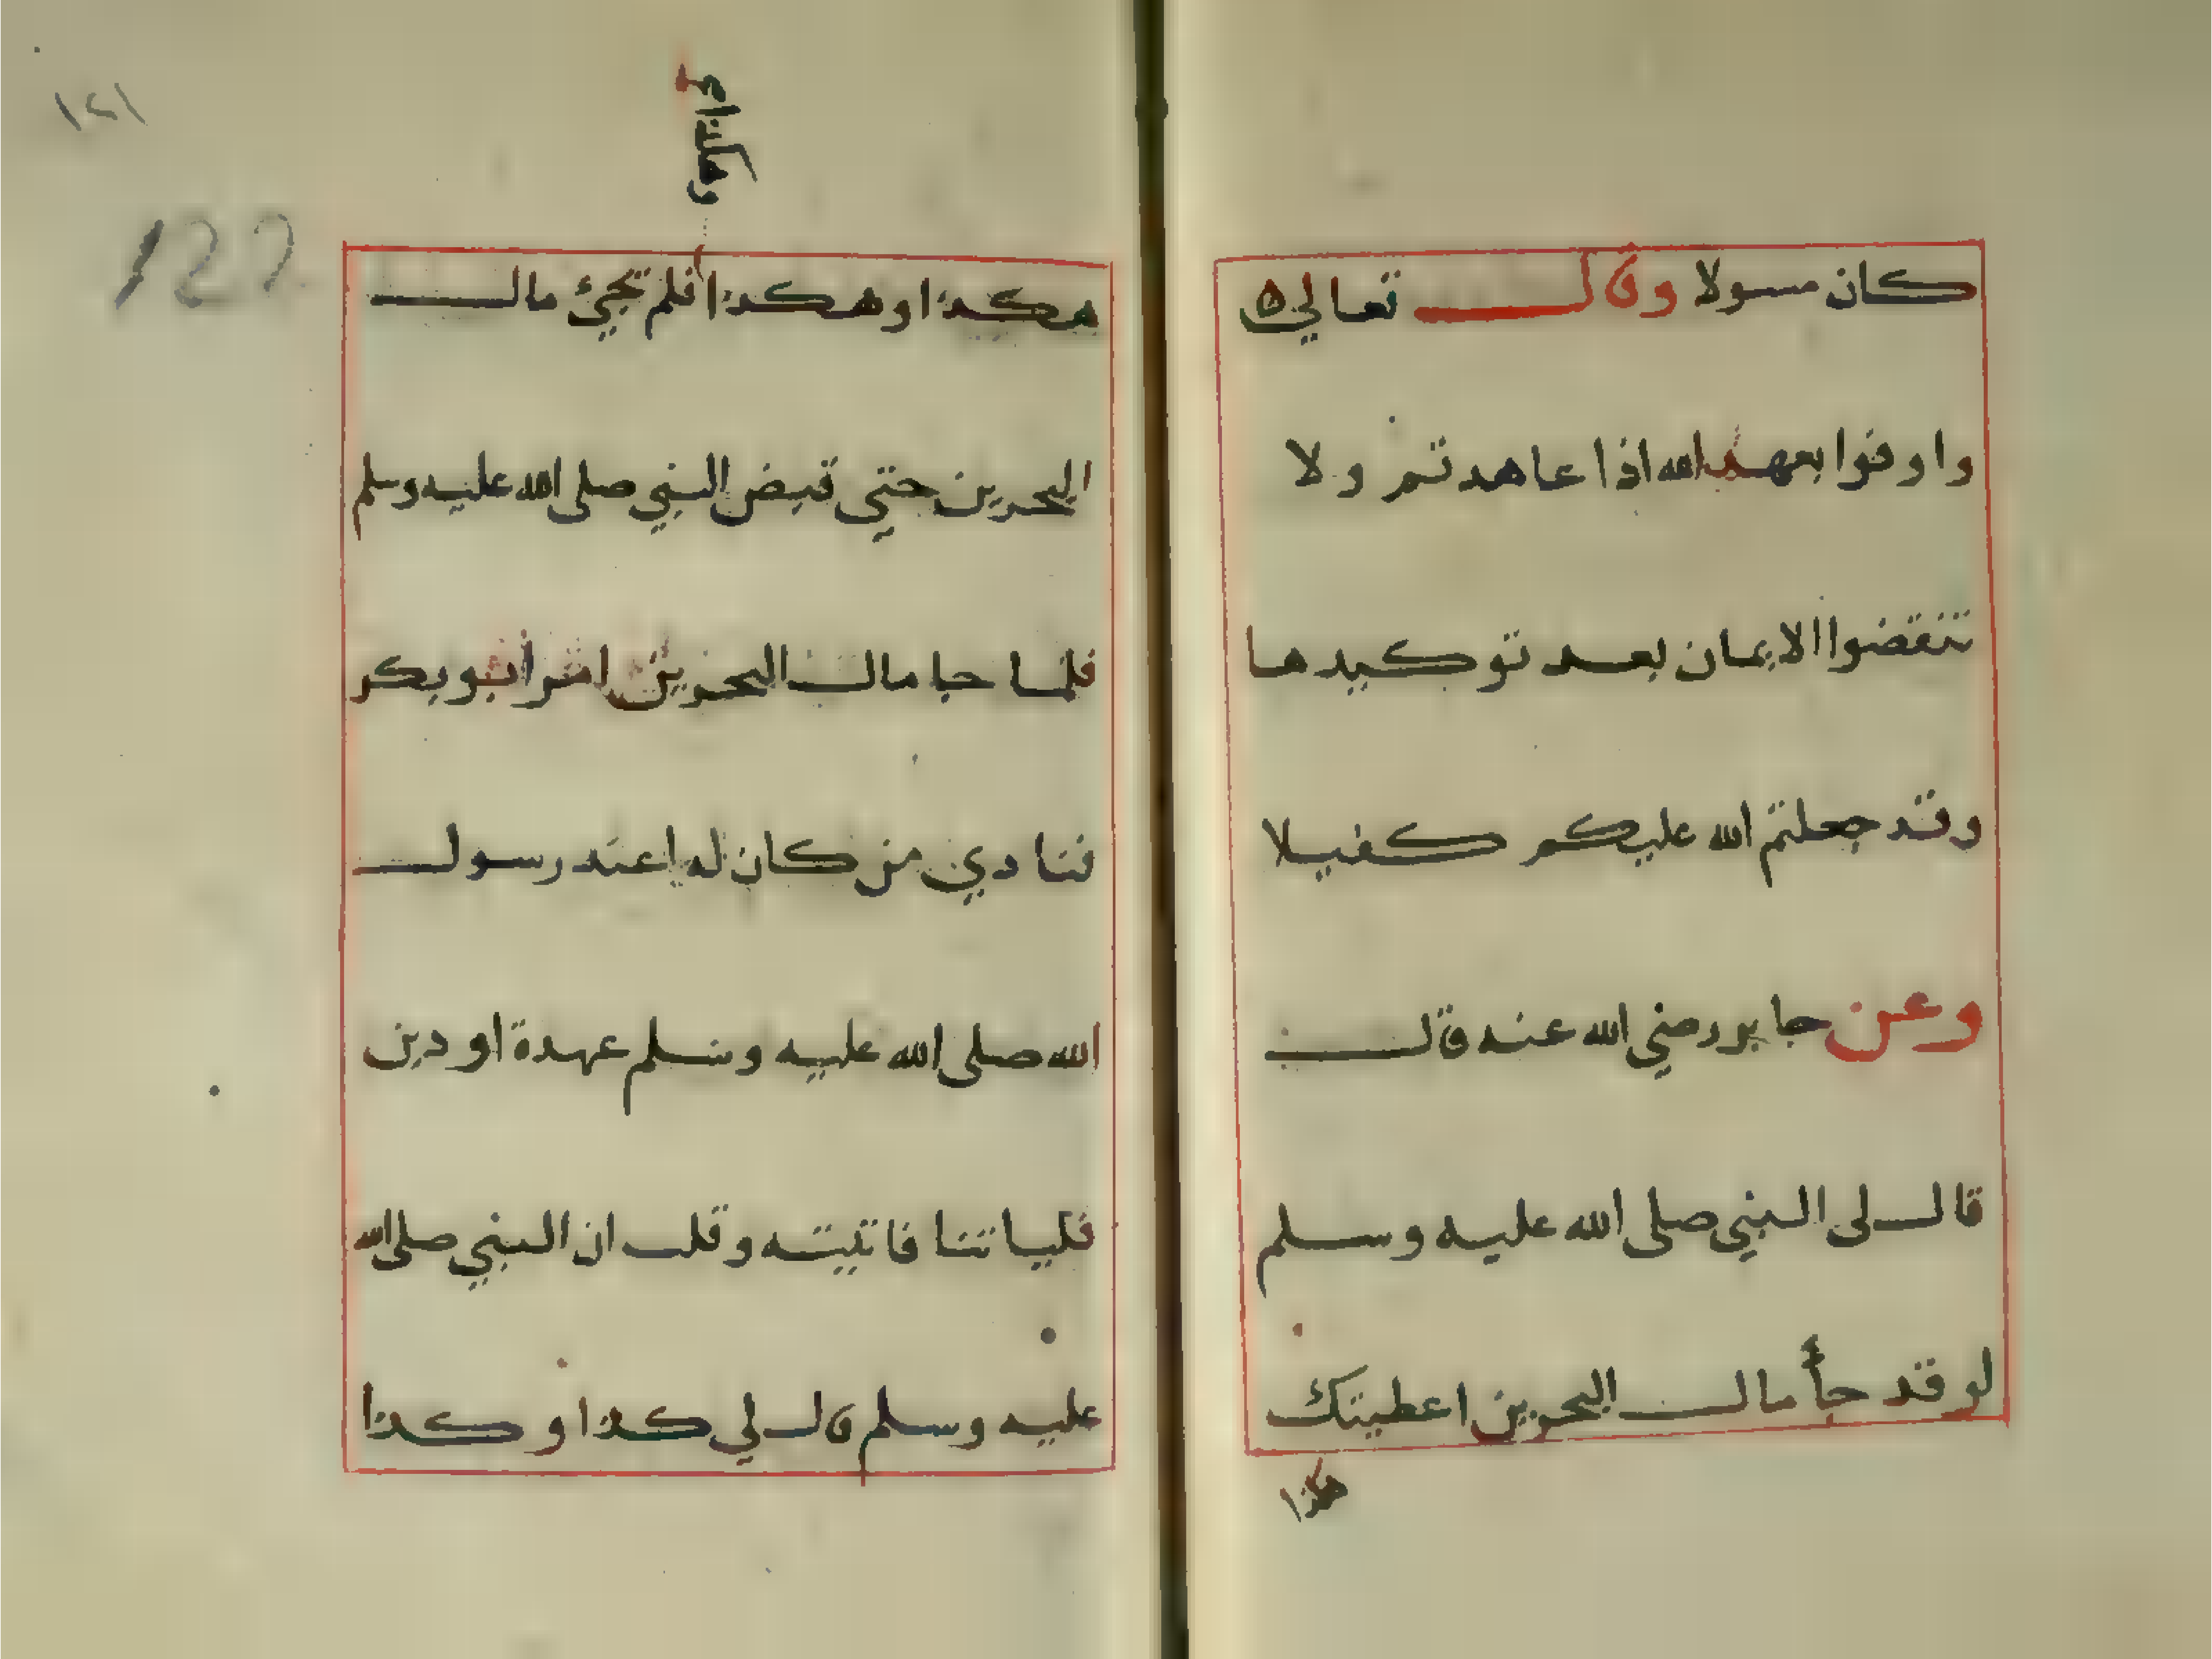 كان مسولا وقال تعالي ه
واوفوا بعهد الله اذا عاهدتم ولا
تنقضوا الايمان بعد توكيدها
وقد جعلتم الله عليكم كفيلا
وعن جابر رضي الله عنه قال
قال لى النبي صلى الله عليه وسلم
لو قد جأ مال البحرين اعطيتك
هكذا
١٢١
122
وهكذا
هكذا وهكذا فلم تجيئ مال
البحرين حتي قبض النبي صلى الله عليه وسلم
فلما جا مال البحرين امر ابو بكر
فنادي من كان له عند رسول
الله صلى الله عليه وسلم عهدة او دين
فلياتنا فاتيته وقلت ان النبي صلى الله
عليه وسلم قال لي كذا وكذا